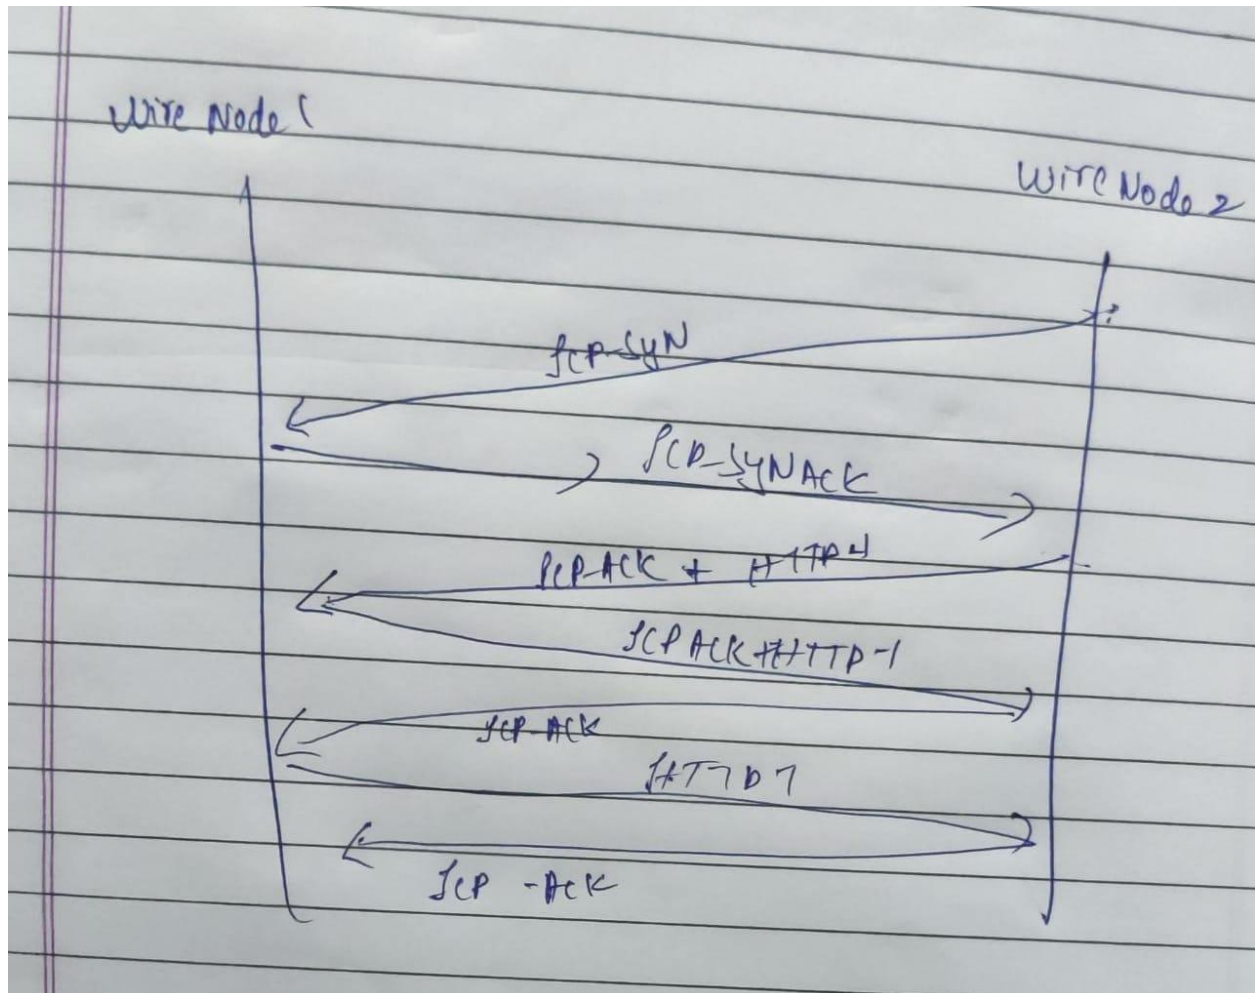 Wire Node 1
Wire Node 2
TCP-SYN
TCP-SYNACK
TCP-ACK + HTTP
TCP ACK + HTTP-1
TCP-ACK
TCP -ACK